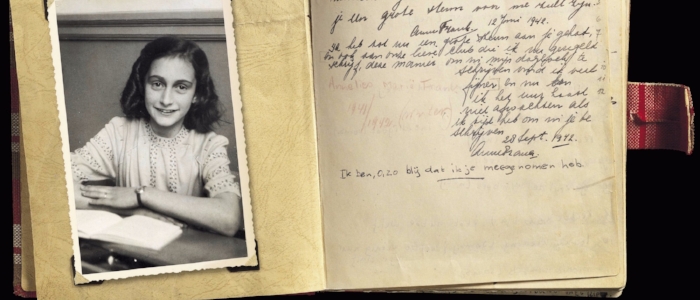 je een grote steun voor me zult zijn.
Anne Frank. 12 Juni 1942.
Ik heb tot nu een grote steun aan je gehad,
en ook aan onze lieve club die ik nu geregeld
schrijf, deze manier om in mijn dagboek te
schrijven vind ik veel
fijner en nu kan
ik het uur haast
niet afwachten als
ik tijd heb om in je te
schrijven.
28 Sept. 1942.
Anne Frank.
Ik ben, o, zo blij dat ik je meegenomen heb.